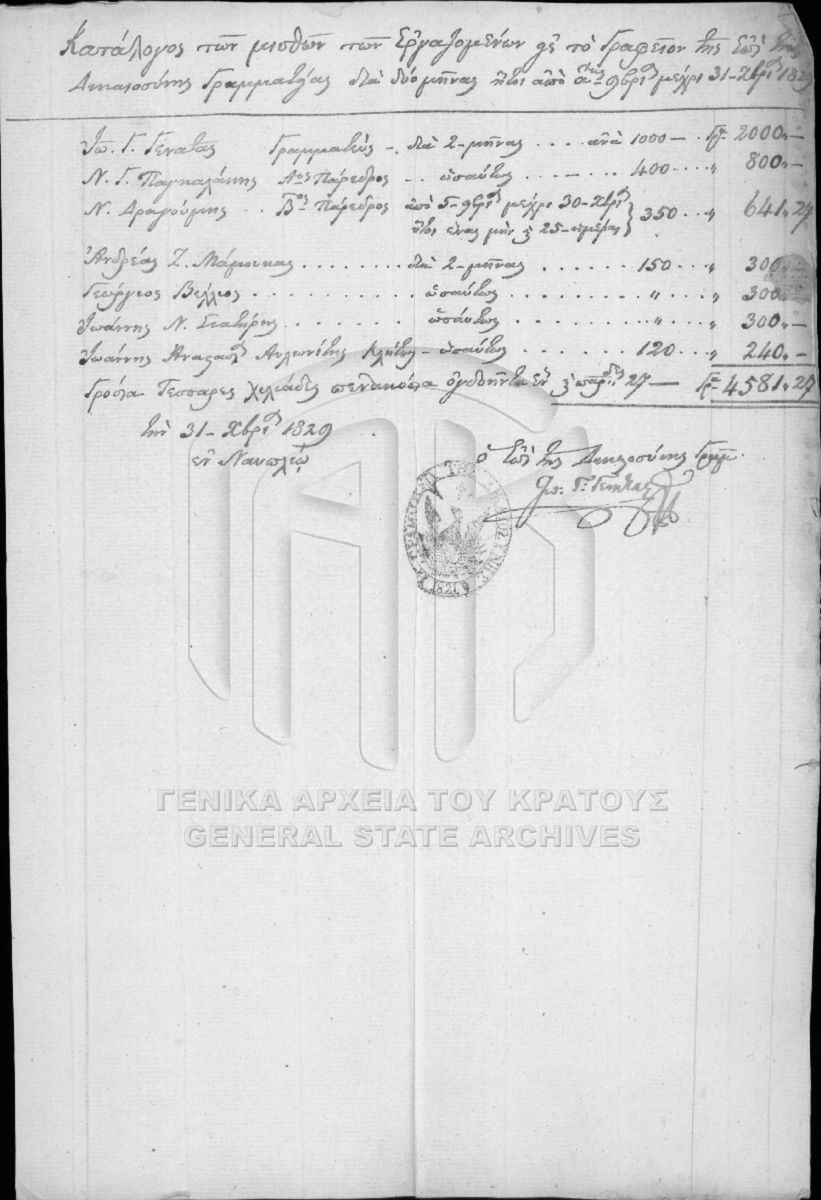 Κατάλογος τῶν μισθῶν τῶν Ἐργαζομένων εἰς τὸ Γραφεῖον τῆς ἐπὶ τῆς
Δικαιοσύνης Γραμματείας διὰ δύο μῆνας ἤτοι ἀπὸ α 9βρίου μέχρι 31 - Χβρίου 1829
Ἰω. Γ. Γενατᾶς Γραμματεύς - διὰ 2 - μῆνας .... ἀνὰ 1000 — . Γρ. 2000 „ —
Ν. Γ. Παγκαλάκης Αος Πάρεδρος - . ὡσαύτως .... 400 .... „ 800 „ —
Ν. Δραγούμης . . Βος Πάρεδρος ἀπὸ 5 - 9βρίου μέχρι 30 - Χβρίου } 350 ... „ 641 „ 27
ἤτοι ἕνας μὴν ϗ 25 - ἡμέρας
Ἀνδρέας Ζ. Μάμουκας ........ διὰ 2 - μῆνας ...... 150 ... „ 300 „ —
Γεώργιος Βέλλιος ........... ὡσαύτως ...... „ .... „ 300 „
Ἰωάννης Ν. Στατήρης ....... ὡσαύτως ...... „ .... „ 300 „ —
Ἰωάννης Αὐλωνίτης Κλητὴρ - ὡσαύτως ...... 120 ... „ 240 „ —
Γρόσια Τέσσαρες χιλιάδες πεντακόσια ὀγδοήντα ἓν ϗ παρ. 27 — Γρ. 4581 „ 27
τὴν 31 - Χβρίου 1829
ἐν Ναυπλίῳ
ὁ ἐπὶ τῆς Δικαιοσύνης Γραμμ.
Ἰω. Γ. Γενατᾶς
ΓΕΝΙΚΑ ΑΡΧΕΙΑ ΤΟΥ ΚΡΑΤΟΥΣ
GENERAL STATE ARCHIVES